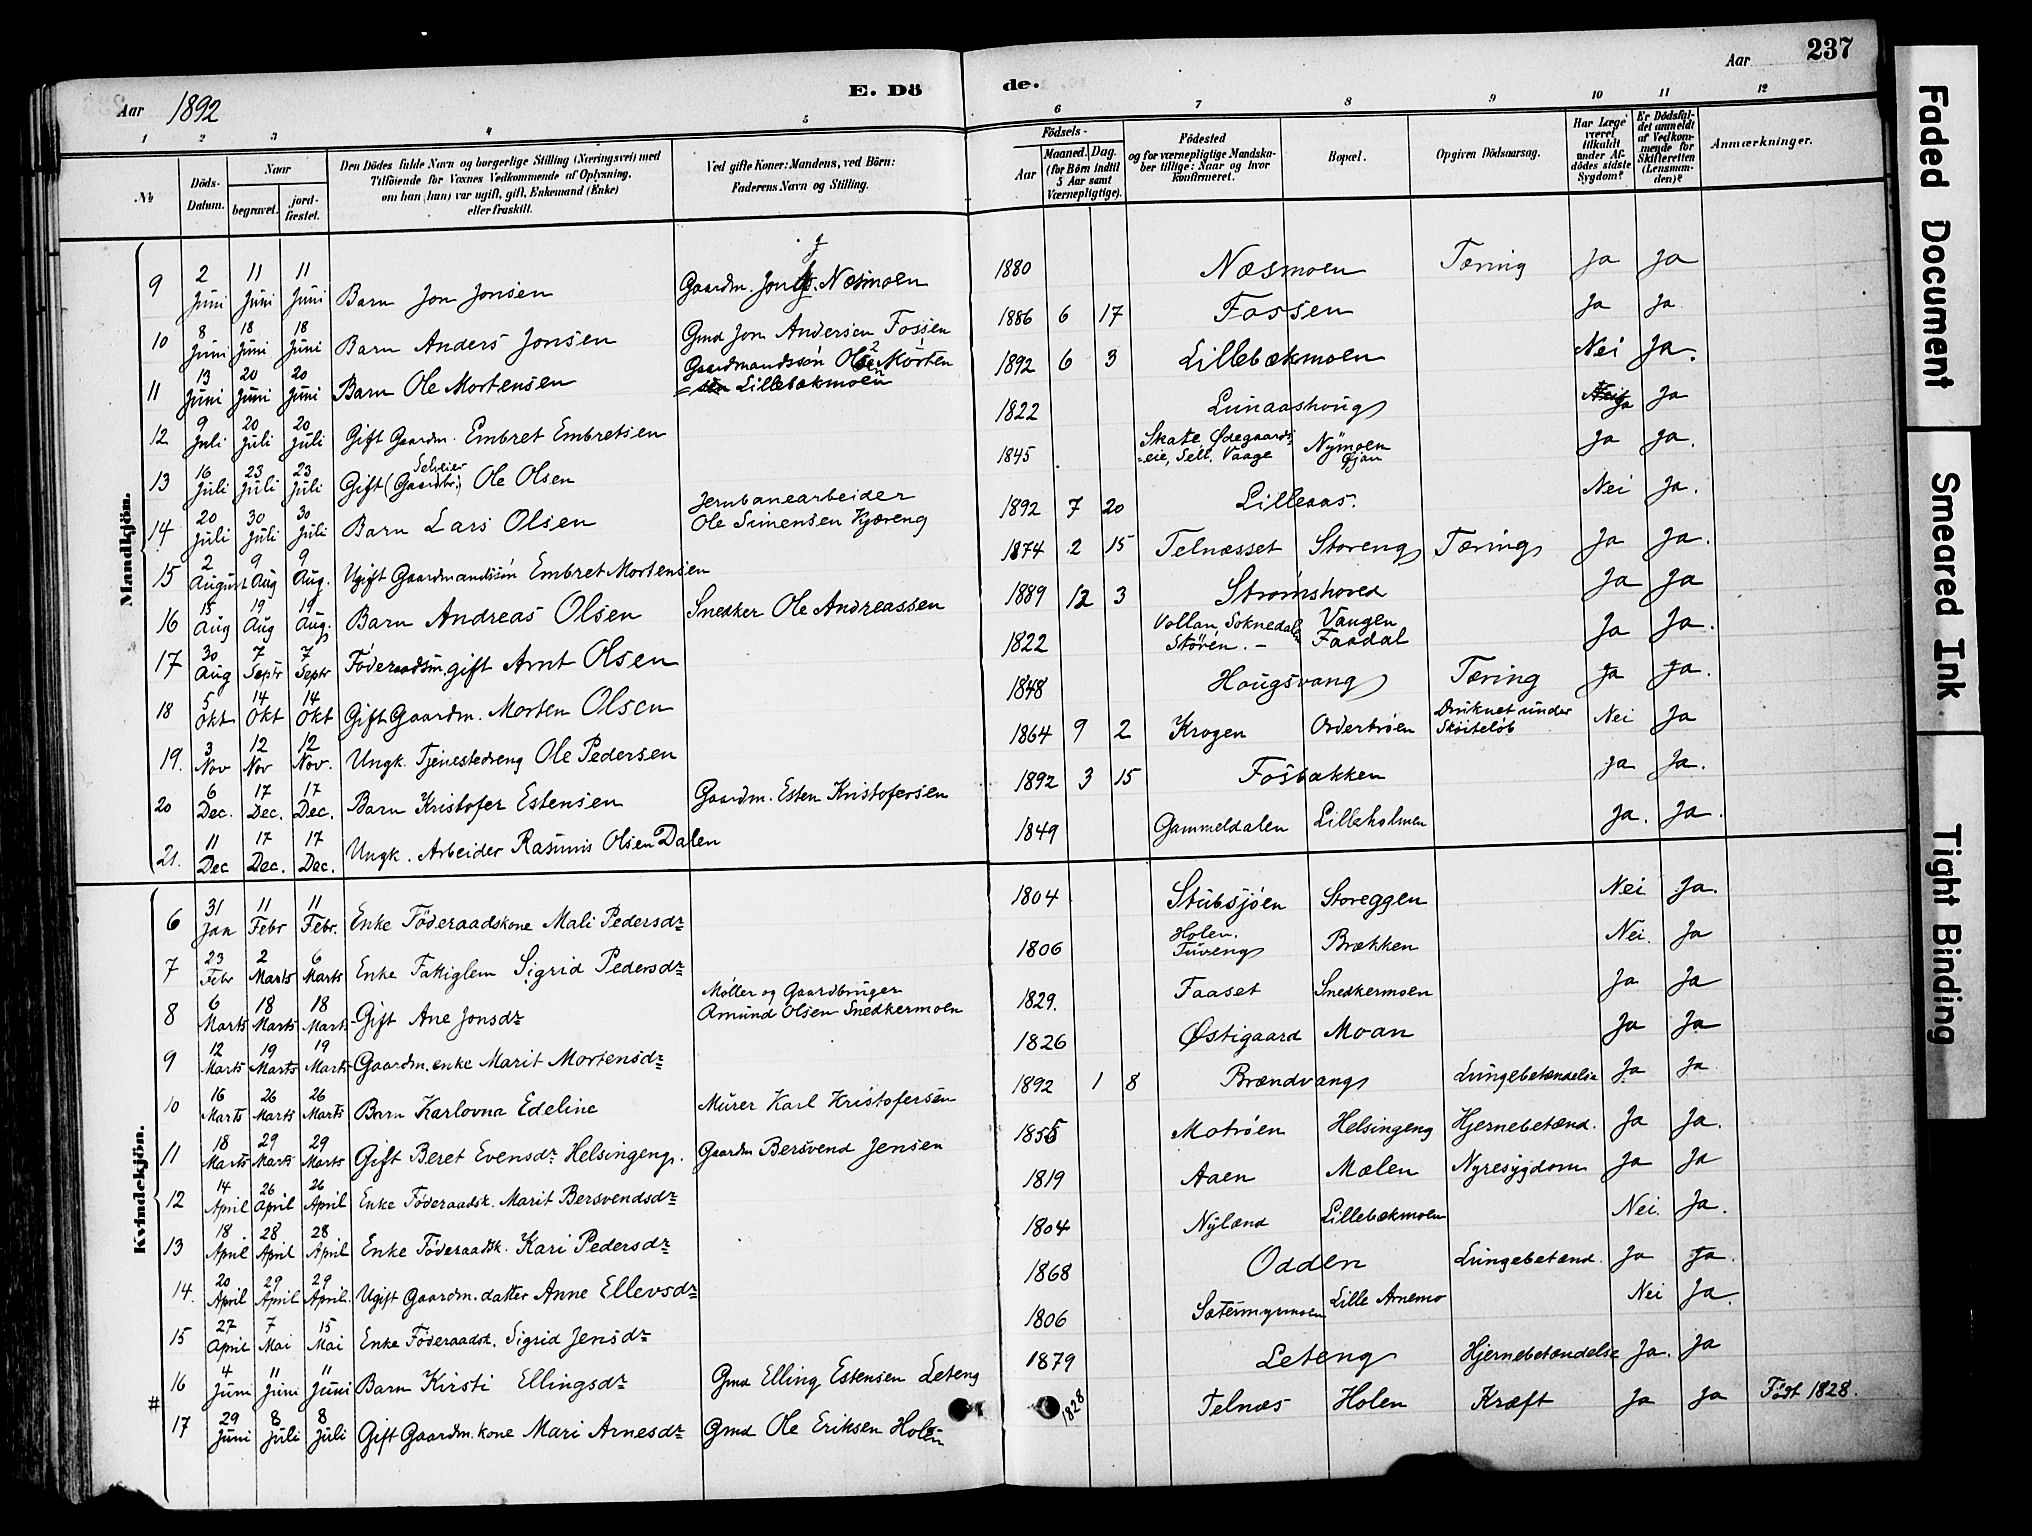 Aar 1892
E. Dö
de.
Aar
237
1 2 3 4 5 6 7 8 9 10 11 12
№
Döds-Datum.
Naar
begravet.
jordfæstet.
Den Dödes fulde Navn og borgerlige Stilling (Næringsvei) med
Tilföiende for Voxnes Vedkommende af Oplysning,
om han (hun) var ugift, gift, Enkemand (Enke)
eller fraskilt.
Ved gifte Koner: Mandens, ved Börn:
Faderens Navn og Stilling.
Födsels-
Aar
Maaned. Dag.
(for Börn indtil
5 Aar samt
Værnepligtige).
Födested
og for værnepligtige Mandskaber tillige: Naar og hvor
Konfirmeret.
Bopæl.
Opgiven Dödsaarsag.
Har Læge
været
tilkaldt
under Afdødes sidste
Sygdom?
Er Dödsfaldet anmeldt
af Vedkommende for
Skifteretten
(Lensmanden)?
Anmærkninger.
Mandkjön.
9 2 Juni 11 Juni 11 Juni Barn Jon Jonsen Gaardm. Jon J. Næsmoen 1880 Næsmoen Tæring Ja Ja
10 8 Juni 18 Juni 18 Juni Barn Anders Jonsen Gmd Jon Andersen Fossen 1886 6 17 Fossen Ja Ja
11 13 Juni 20 Juni 20 Juni Barn Ole Mortensen Gaardmandssøn Morten Lillebækmoen 1892 6 3 Lillebækmoen Nei Ja.
12 9 Juli 20 Juli 20 Juli Gift Gaardm. Embret Embretsen 1822 Lunaashoug Ja Ja
13 16 Juli 23 Juli 23 Juli Gift (Selveier Gaardbr.) Ole Olsen 1845 Skate, Ødegaards-eie, Sell. Vaage Nÿmoen Gjan Ja Ja.
14 20 Juli 30 Juli 30 Juli Barn Lars Olsen Jernbanearbeider Ole Simensen Kjæreng 1892 7 20 Lilleaas. Nei Ja.
15 2 August 9 Aug 9 Aug. Ugift Gaardmandssøn Embret Mortensen 1874 2 15 Telnæsset Storeng Tæring Ja Ja.
16 15 Aug 19 Aug 19 Aug. Barn Andreas Olsen Snedker Ole Andreassen 1889 12 3 Strømshoved Ja Ja
17 30 Aug 7 Septr 7 Septr Föderaadsm. gift Arnt Olsen 1822 Vollan Soknedalen Støren. – Vangen Faadal Ja Ja.
18 5 Okt 14 Okt 14 Okt Gift Gaardm. Morten Olsen 1848 Hougsvang Tæring Ja Ja.
19. 3 Nov 12 Nov 12 Nov. Ungk. Tjenestedreng Ole Pedersen 1864 9 2 Krogen Ordertrøen Druknet under Skøiteløb Nei Ja
20 6 Dec. 17 Dec. 17 Dec. Barn Kristofer Estensen Gaardm. Esten Kristofersen 1892 3 15 Fosbakken Ja Ja.
21. 11 Dec 17 Dec. 17 Dec. Ungk. Arbeider Rasmus Olsen Dalen 1849 Gammeldalen Lilleholmen Ja. Ja.
Kvindekjön.
6 31 Jan 11 Febr 11 Febr. Enke Föderaadskone Mali Pedersdr 1804 Stubsjøen Storeggen Nei Ja.
7 23 Febr 2 Marts 6 Marts Enke Fattiglem Sigrid Pedersdr 1806 Holen. Tuveng Brækken Nei. Ja
8 6 Marts 18 Marts 18 Marts Gift Ane Jonsdr Møller og Gaardbruger Amund Olsen Snedkermoen 1829. Faaset Snedkermoen Ja Ja
9 12 Marts 19 Marts 19 Marts Gaardm. enke Marit Mortensdr 1826 Østigaard Moan Ja Ja
10 16 Marts 26 Marts 26 Marts Barn Karlovna Edeline Murer Karl Kristofersen 1892 1 8 Brændvang Lungebetændelse Ja Ja
11 18 Marts 29 Marts 29 Marts Gift Beret Evensdr Helsingeng. Gaardm Bersvend Jensen 1855 Motrøen Helsingeng Hjernebetænd. Ja Ja.
12 14 April 26 April 26 April Enke Föderaadsk. Marit Bersvendsdr 1819 Aaen Mælen Nyresygdom Ja Ja
13 18. April 28 April 28 April Enke Föderaadsk. Kari Pedersdr 1804 Nÿland Lillebækmoen Nei. Ja.
14. 20 April 29 April 29 April. Ugift Gaardm. datter Anne Ellevsdr 1868 Odden Lungebetænd. Ja Ja.
15 27 April 7 Mai 15 Mai Enke Föderaadsk. Sigrid Jensdr 1806 Sætermyrmoen Lille Arnemo Nei Ja.
16 4 Juni 11 Juni 11 Juni Barn Kirsti Ellingsdr Gmd Elling Estensen Leteng 1879 Leteng Hjernebetændelse Ja. Ja
# 17 29 Juni 8 Juli 8 Juli Gift Gaardm. kone Mari Arnesdr Gmd Ole Eriksen Holen 1828 Telnæs Holen Kræft Ja Ja Født 1828.
Faded Document
Smeared Ink
Tight Binding